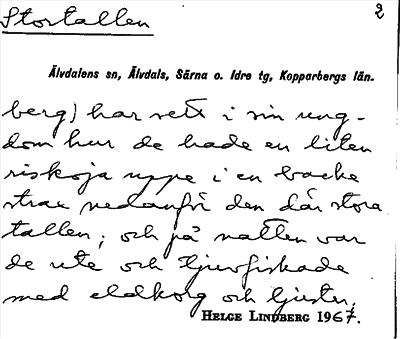 Stortallen
2
Älvdalens sn, Älvdals, Särna o. Idre tg, Kopparbergs län.
berg) har sett i sin ung-
dom hur de hade en liten
riskoja uppe i en backe
strax nedanför den där stora
tallen; och på natten var
de ute och tjuvfiskade
med eldkorg och ljuster.
HELGE LINDBERG 1967.